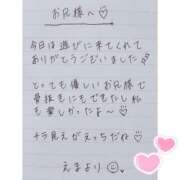 お兄様へ♡
今日は遊びに来てくれて
ありがとうございました
とっても優しいお兄様で
骨抜きにもできたし私
も楽しかったです♡
チラ見えがえっちだね♡
えまより